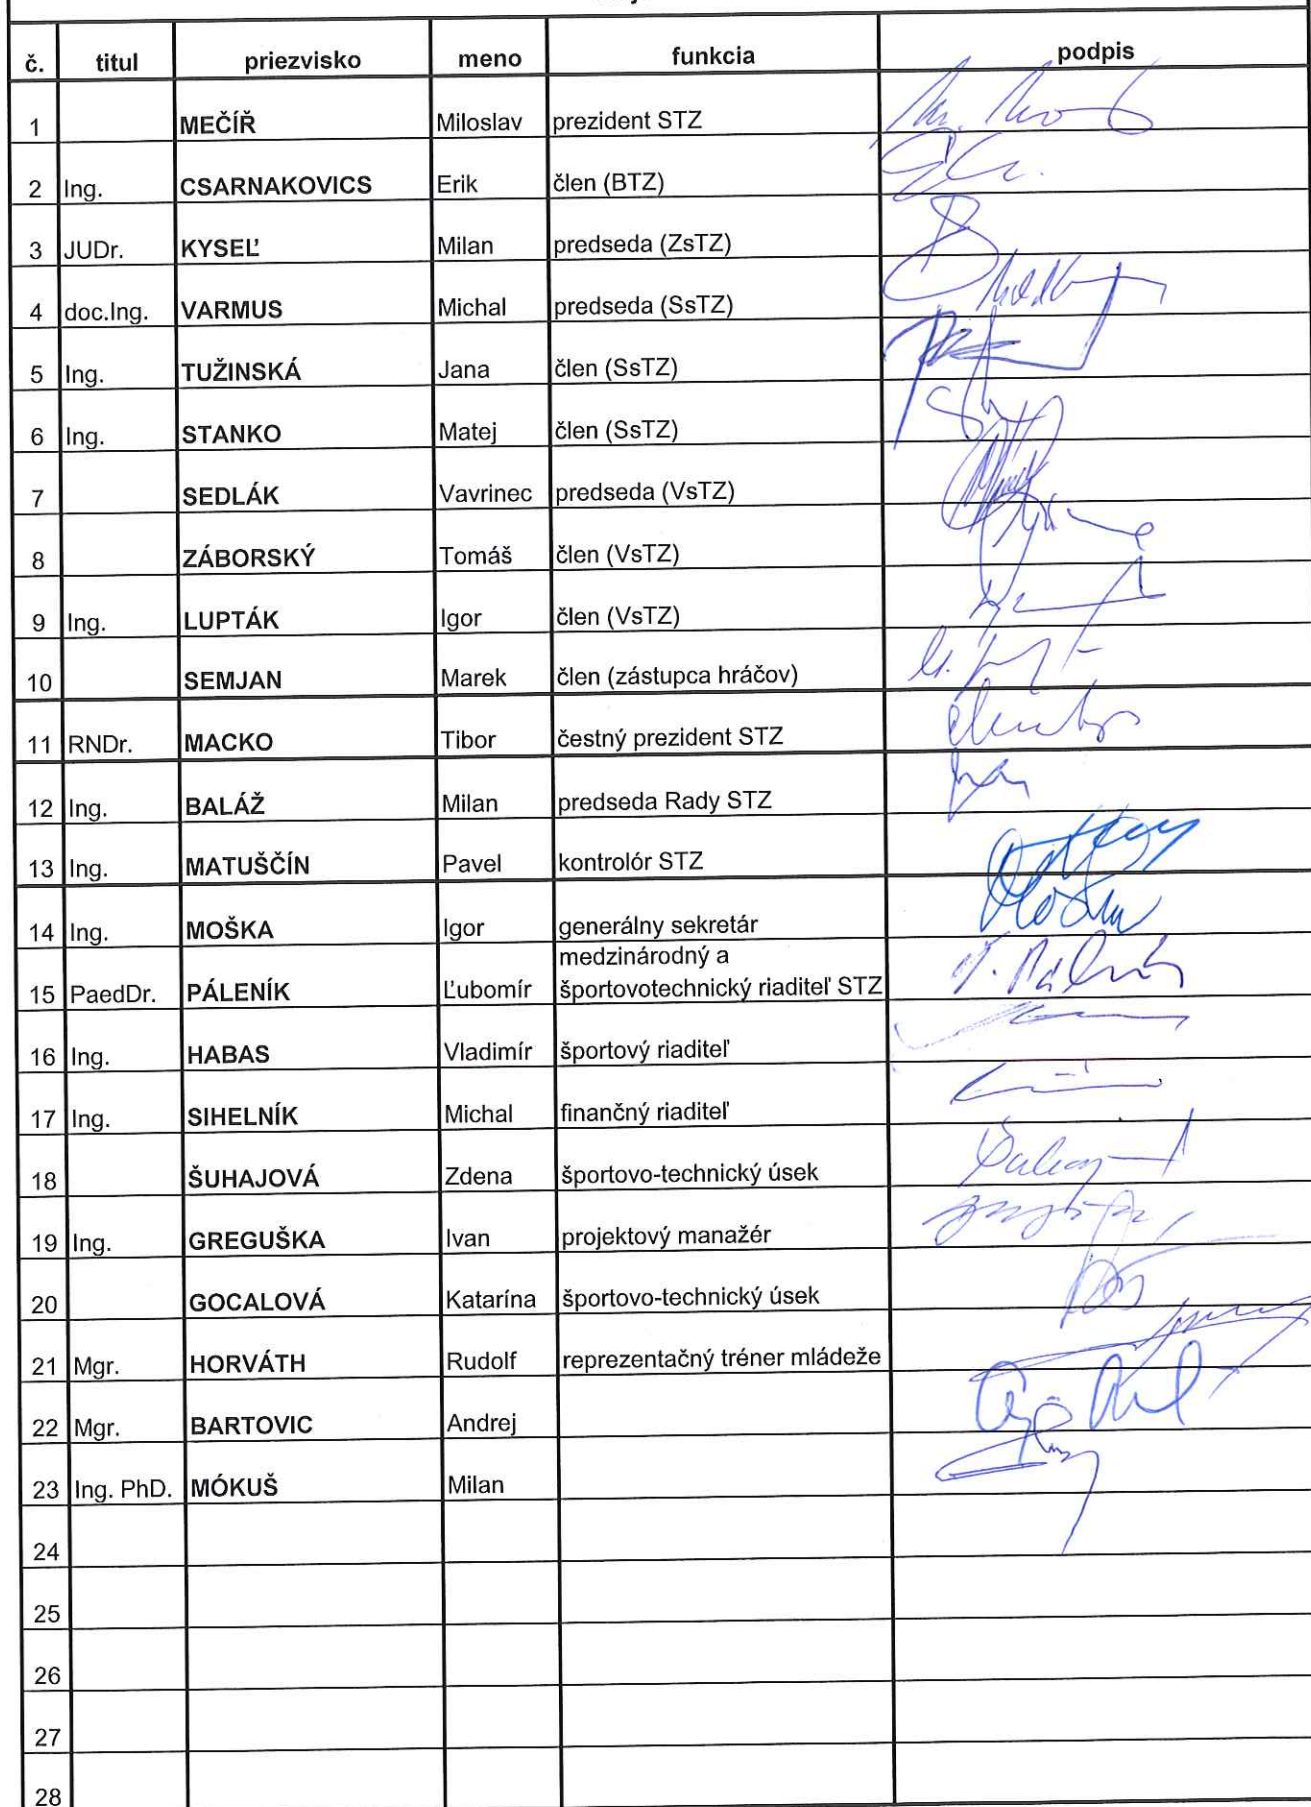 č. titul priezvisko meno funkcia podpis
1 MEČÍŘ Miloslav prezident STZ
2 Ing. CSARNAKOVICS Erik člen (BTZ)
3 JUDr. KYSEĽ Milan predseda (ZsTZ)
4 doc.Ing. VARMUS Michal predseda (SsTZ)
5 Ing. TUŽINSKÁ Jana člen (SsTZ)
6 Ing. STANKO Matej člen (SsTZ)
7 SEDLÁK Vavrinec predseda (VsTZ)
8 ZÁBORSKÝ Tomáš člen (VsTZ)
9 Ing. LUPTÁK Igor člen (VsTZ)
10 SEMJAN Marek člen (zástupca hráčov)
11 RNDr. MACKO Tibor čestný prezident STZ
12 Ing. BALÁŽ Milan predseda Rady STZ
13 Ing. MATUŠČÍN Pavel kontrolór STZ
14 Ing. MOŠKA Igor generálny sekretár
medzinárodný a
15 PaedDr. PÁLENÍK Ľubomír športovotechnický riaditeľ STZ
16 Ing. HABAS Vladimír športový riaditeľ
17 Ing. SIHELNÍK Michal finančný riaditeľ
18 ŠUHAJOVÁ Zdena športovo-technický úsek
19 Ing. GREGUŠKA Ivan projektový manažér
20 GOCALOVÁ Katarína športovo-technický úsek
21 Mgr. HORVÁTH Rudolf reprezentačný tréner mládeže
22 Mgr. BARTOVIC Andrej
23 Ing. PhD. MÓKUŠ Milan
24
25
26
27
28